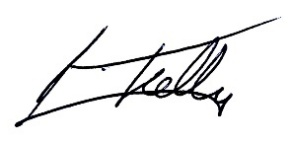 L. Kelly